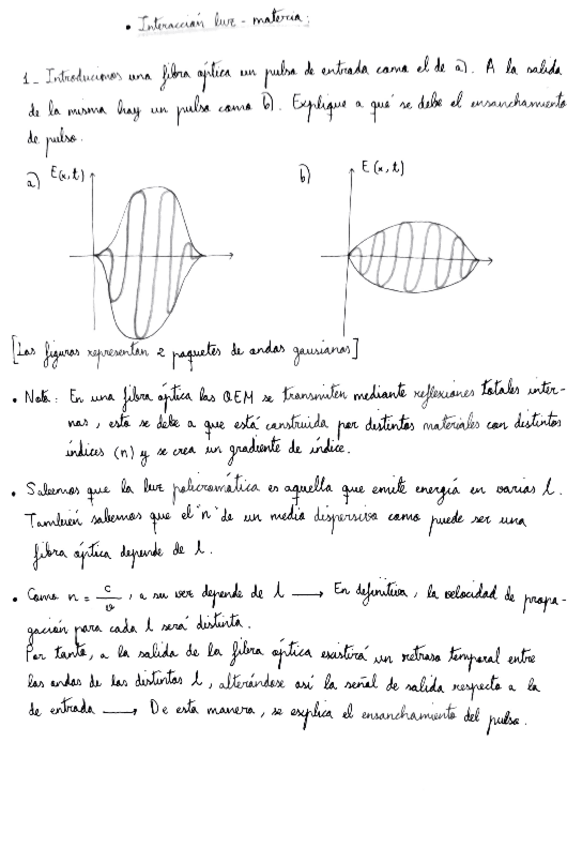 • Interacción luz - materia:
1_ Introducimos una fibra óptica un pulso de entrada como el de a). A la salida
de la misma hay un pulso como b). Explique a qué se debe el ensanchamiento
de pulso.
a) E(x,t)
b) E(x,t)
[Las figuras representan 2 paquetes de ondas gausianos]
• Nota: En una fibra óptica las OEM se transmiten mediante reflexiones totales inter-
nas, esto se debe a que está construida por distintos materiales con distintos
índices (n) y se crea un gradiente de índice.
• Sabemos que la luz policromática es aquella que emite energía en varias λ.
También sabemos que el "n" de un medio dispersivo como puede ser una
fibra óptica depende de λ.
• Como n = c/v, a su vez depende de λ ⟶ En definitiva, la velocidad de propa-
gación para cada λ será distinta.
Por tanto, a la salida de la fibra óptica existirá un retraso temporal entre
las ondas de las distintas λ, alterándose así la señal de salida respecto a la
de entrada ⟶ De esta manera, se explica el ensanchamiento del pulso.